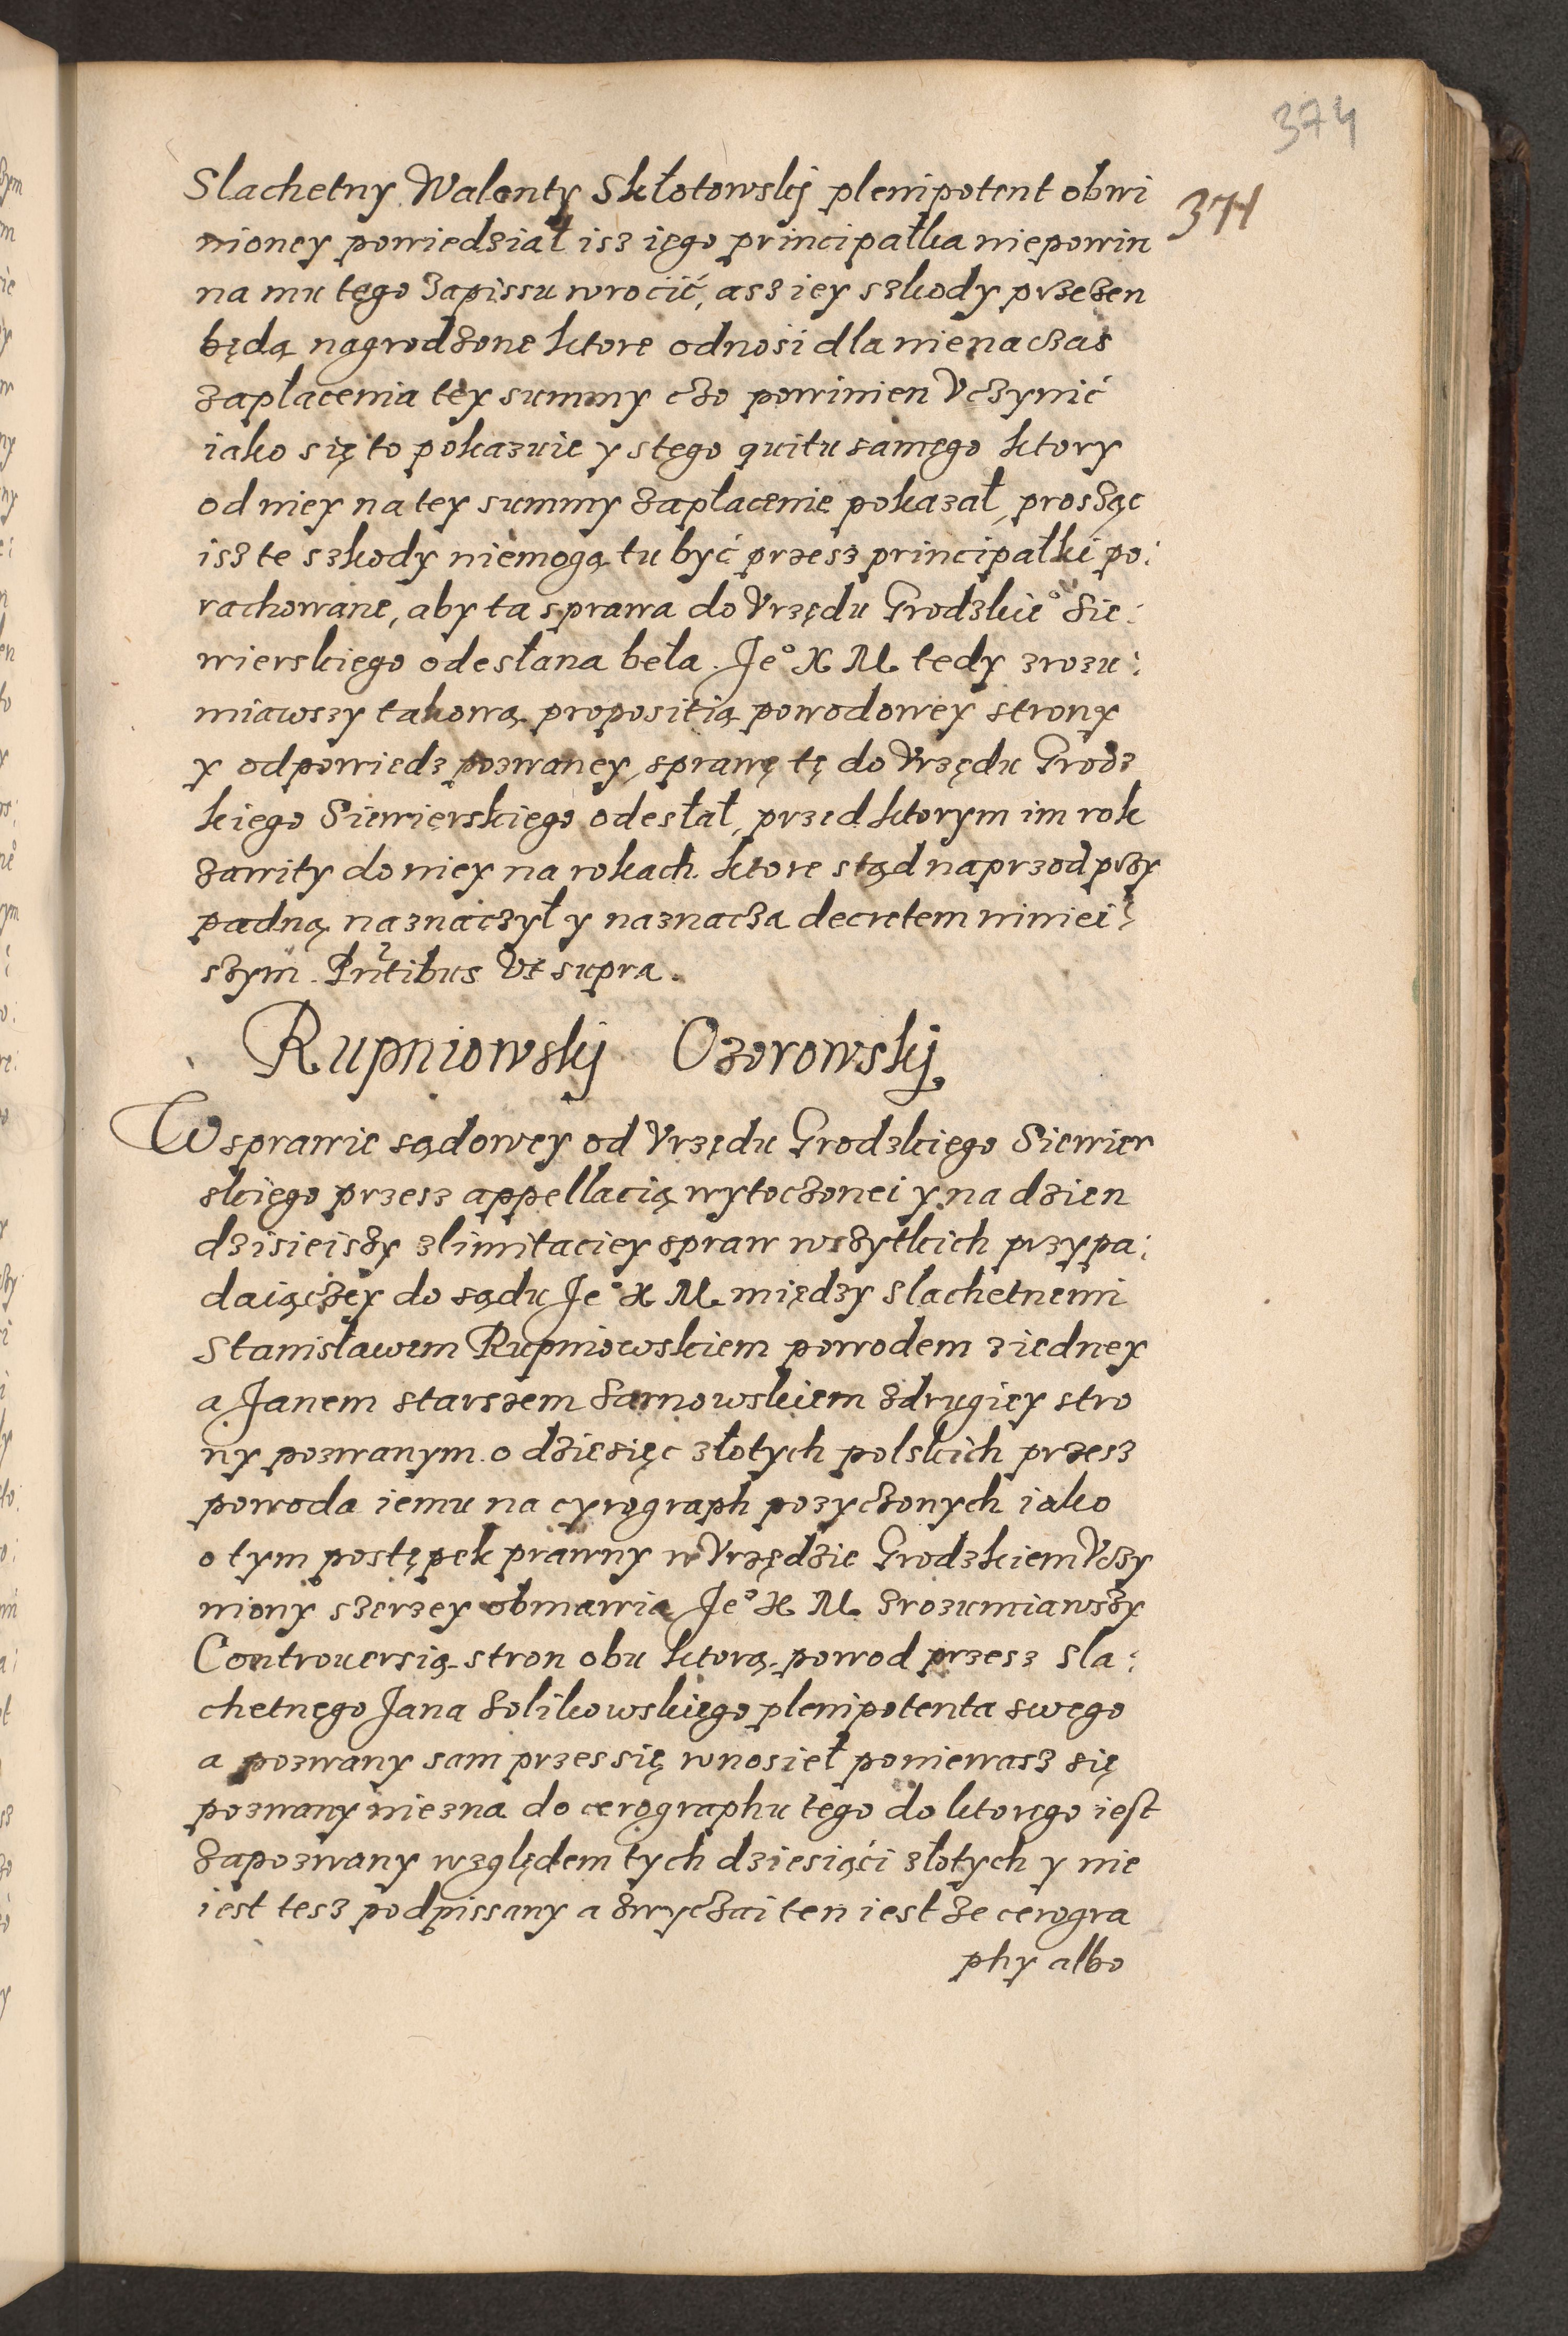 374
374
Slachetny Walenty Skłotowskij plenipotent obwi
nioney powiedział isz iego principałka niepowin
na mu tego zapissu wrocić, asz iey szkody przezen
będą nagrodzone ktore odnosi dla nienaczas
zapłacenia tey summy czo powinien Vczynić
iako się to pokazuie y stego quitu samego ktory
od niey na tey summy zapłacenie pokazał, prosząc
isz te szkody niemogą tu być przesz principałki po:
rachowane, aby ta sprawa do Vrzędu Grodzkie° Sie:
wierskiego odesłana beła. Je° X M tedy zrozu:
miawszy takową propositią powodowey strony
y odpowiedz pozwaney, sprawę tę do Vrzędu Grodz
kiego Siewierskiego odesłał, przed ktorym im rok
zawity do niey na rokach ktore stąd naprzod przy
padną naznaczył y naznacza decretem niniei:
szym. Pntibus Vt supra.
Rupniowskij Ozorowskij
W sprawie sądowey od Vrzędu Grodzkiego Siewier
skiego przesz appellacią wytoczonei y na dzien
dzisieiszy zlimitaciey spraw wszytkich przypa:
daiączey do sądu Je° X M. między slachetnemi
Stanisławem Rupniowskiem powodem ziedney
a Janem starszem Sarnowskiem zdrugiey stro
ny pozwanym o dziesięc złotych polskich przesz
powoda iemu na cyrograph pozyczonych iako
o tym postępek prawny w Vrzędzie Grodzkiem Vczy
niony szerzey obmawia Je° X M. zrozumiawszy
Controuersią stron obu ktorą powod przesz sla:
chetnego Jana Solikowskiego plenipotenta swego
a pozwany sam przes się wnosieł poniewasz się
pozwany niezna do cerographu tego do ktorego iest
zapozwany względem tych dziesiąći złotych y nie
iest tesz podpissany a zwyczai ten iest ze cerogra
phy albo